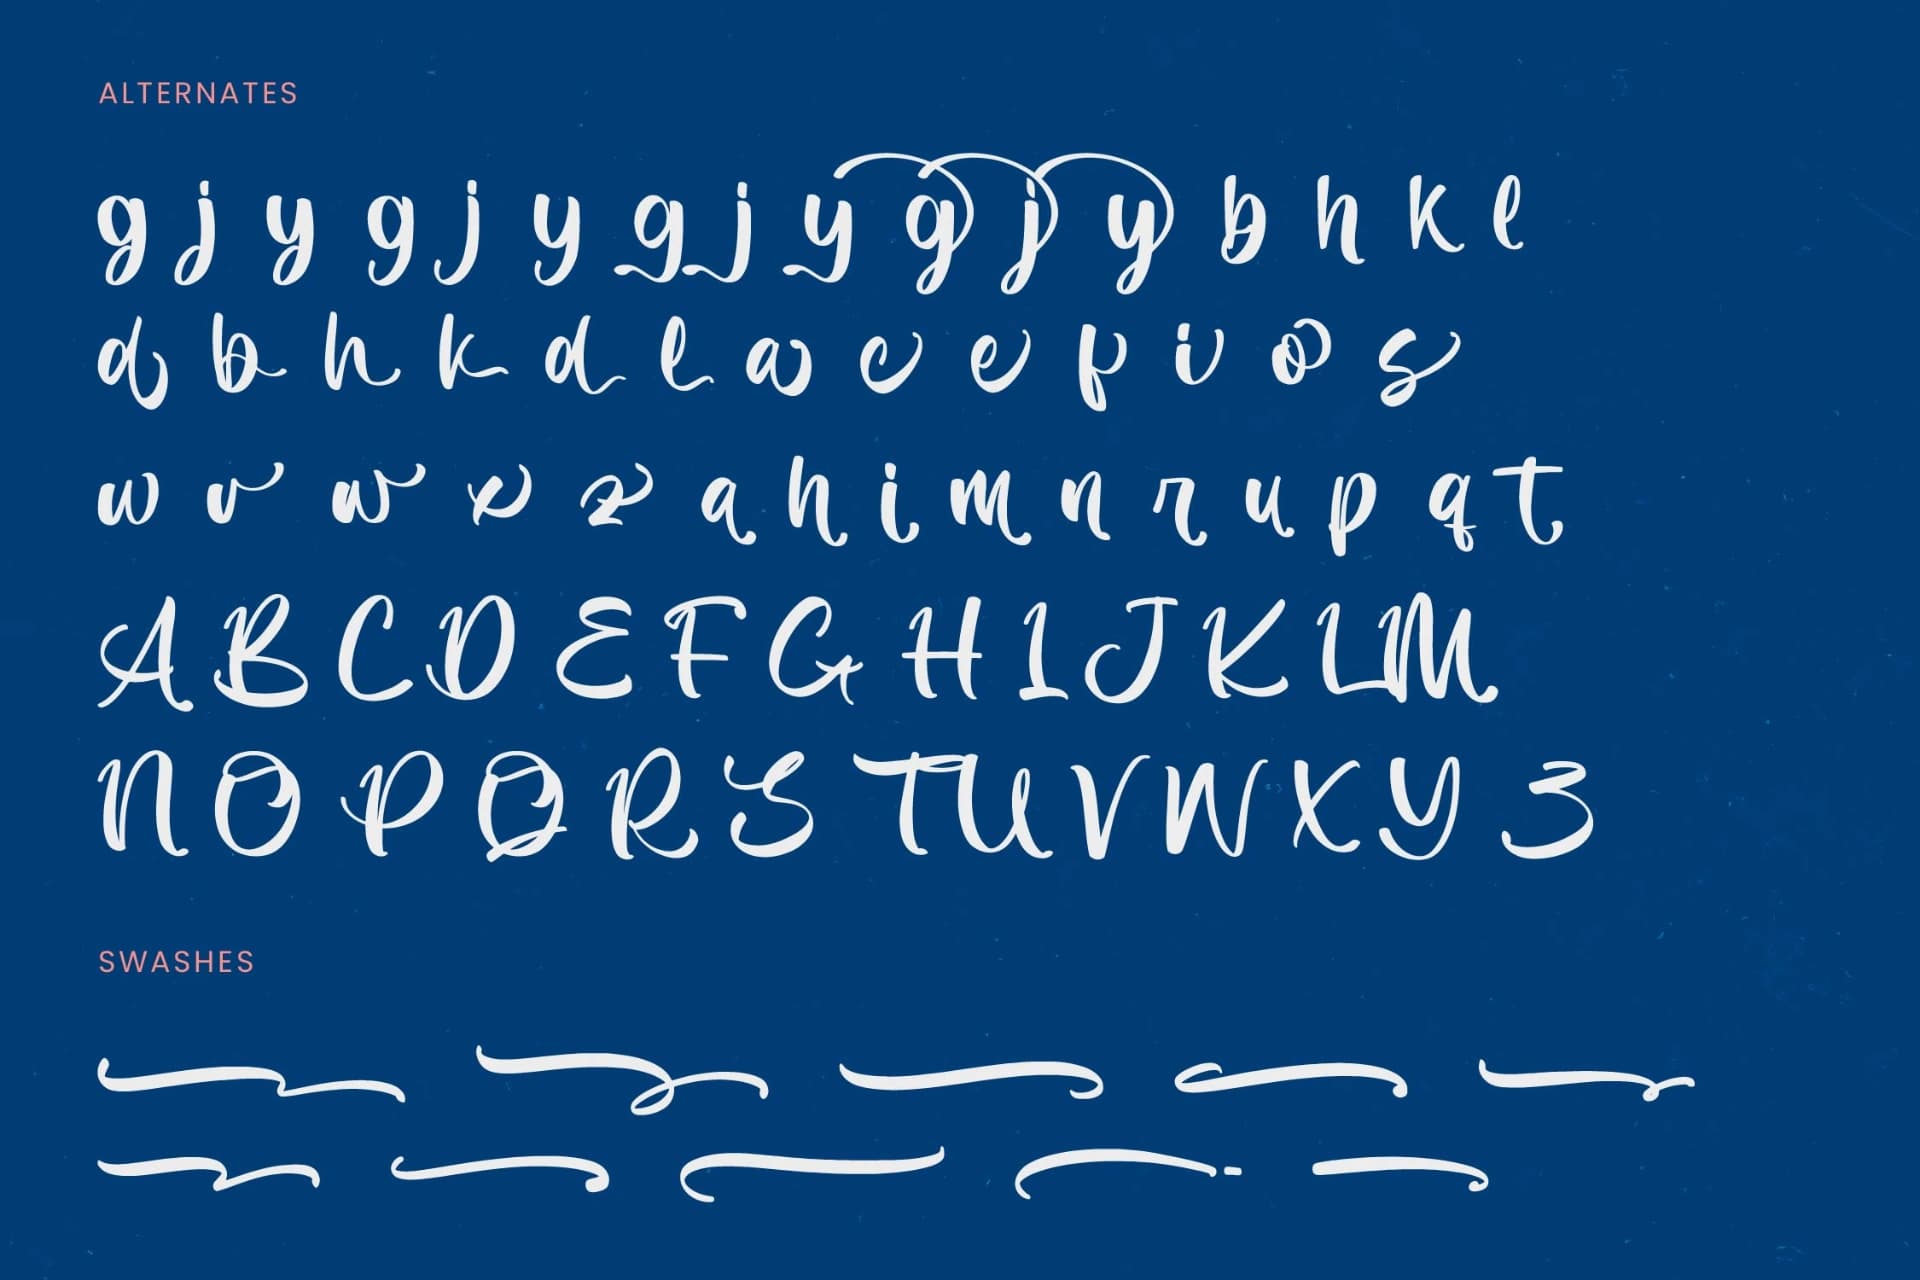 ALTERNATES
g j y g j y g j y g j y b h k l
d b h k d l a c e f i o s
w v w x z a h i m n r u p q t
A B C D E F G H I J K L M
N O P Q R S T U V W X Y Z
SWASHES